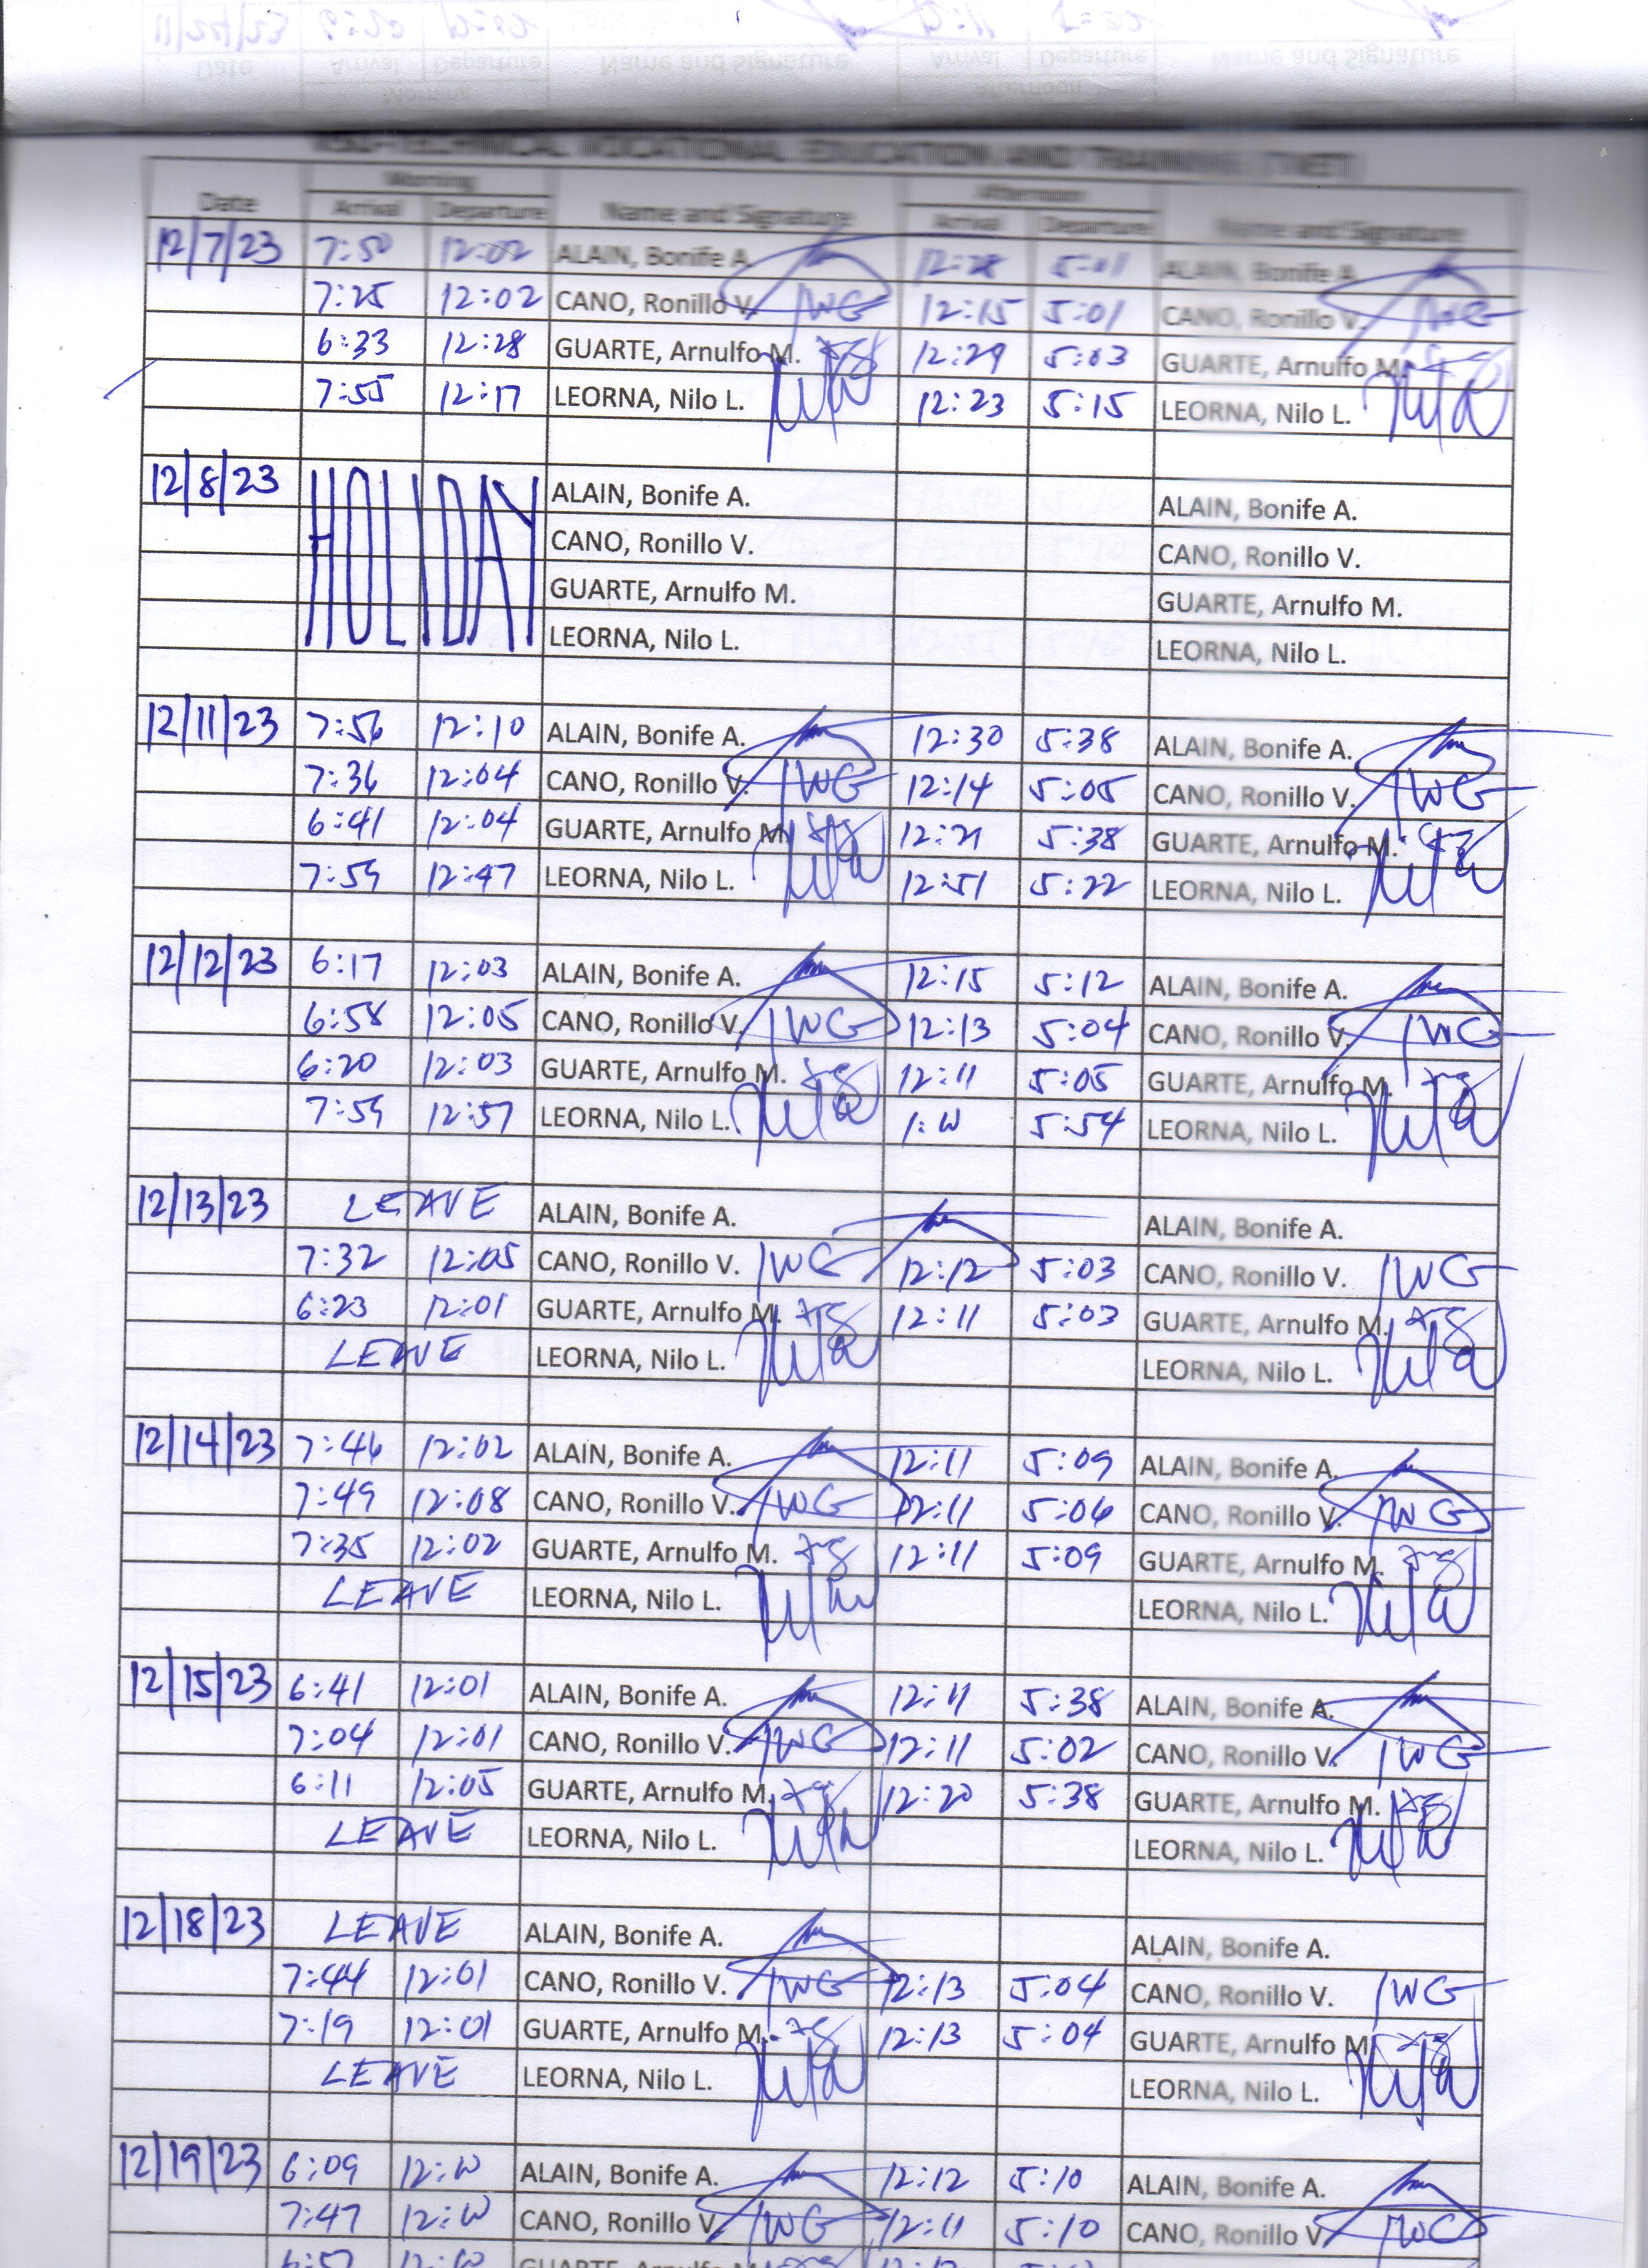 TECHNICAL VOCATIONAL EDUCATION AND TRAINING (TVET)
Morning Afternoon
Date Arrival Departure Name and Signature Arrival Departure Name and Signature
12/7/23 7:50 12:02 ALAIN, Bonife A. 12:28 5:01 ALAIN, Bonife A.
7:25 12:02 CANO, Ronillo V. 12:15 5:01 CANO, Ronillo V.
6:33 12:28 GUARTE, Arnulfo M. 12:29 5:03 GUARTE, Arnulfo M.
7:55 12:17 LEORNA, Nilo L. 12:23 5:15 LEORNA, Nilo L.
12/8/23 HOLIDAY ALAIN, Bonife A. ALAIN, Bonife A.
CANO, Ronillo V. CANO, Ronillo V.
GUARTE, Arnulfo M. GUARTE, Arnulfo M.
LEORNA, Nilo L. LEORNA, Nilo L.
12/11/23 7:56 12:10 ALAIN, Bonife A. 12:30 5:38 ALAIN, Bonife A.
7:36 12:04 CANO, Ronillo V. 12:14 5:05 CANO, Ronillo V.
6:41 12:04 GUARTE, Arnulfo M. 12:21 5:38 GUARTE, Arnulfo M.
7:59 12:47 LEORNA, Nilo L. 12:51 5:22 LEORNA, Nilo L.
12/12/23 6:17 12:03 ALAIN, Bonife A. 12:15 5:12 ALAIN, Bonife A.
6:58 12:05 CANO, Ronillo V. 12:13 5:04 CANO, Ronillo V.
6:20 12:03 GUARTE, Arnulfo M. 12:11 5:05 GUARTE, Arnulfo M.
7:59 12:57 LEORNA, Nilo L. 5:54 LEORNA, Nilo L.
12/13/23 LEAVE ALAIN, Bonife A. ALAIN, Bonife A.
7:32 12:05 CANO, Ronillo V. 12:12 5:03 CANO, Ronillo V.
6:23 12:01 GUARTE, Arnulfo M. 12:11 5:03 GUARTE, Arnulfo M.
LEAVE LEORNA, Nilo L. LEORNA, Nilo L.
12/14/23 7:46 12:02 ALAIN, Bonife A. 12:11 5:09 ALAIN, Bonife A.
7:49 12:08 CANO, Ronillo V. 12:11 5:06 CANO, Ronillo V.
7:35 12:02 GUARTE, Arnulfo M. 12:11 5:09 GUARTE, Arnulfo M.
LEAVE LEORNA, Nilo L. LEORNA, Nilo L.
12/15/23 6:41 12:01 ALAIN, Bonife A. 12:11 5:38 ALAIN, Bonife A.
7:04 12:01 CANO, Ronillo V. 12:11 5:02 CANO, Ronillo V.
6:11 12:05 GUARTE, Arnulfo M. 12:20 5:38 GUARTE, Arnulfo M.
LEAVE LEORNA, Nilo L. LEORNA, Nilo L.
12/18/23 LEAVE ALAIN, Bonife A. ALAIN, Bonife A.
7:44 12:01 CANO, Ronillo V. 12:13 5:04 CANO, Ronillo V.
7:19 12:01 GUARTE, Arnulfo M. 12:13 5:04 GUARTE, Arnulfo M.
LEAVE LEORNA, Nilo L. LEORNA, Nilo L.
12/19/23 6:09 ALAIN, Bonife A. 12:12 5:10 ALAIN, Bonife A.
7:47 CANO, Ronillo V. 12:11 5:10 CANO, Ronillo V.